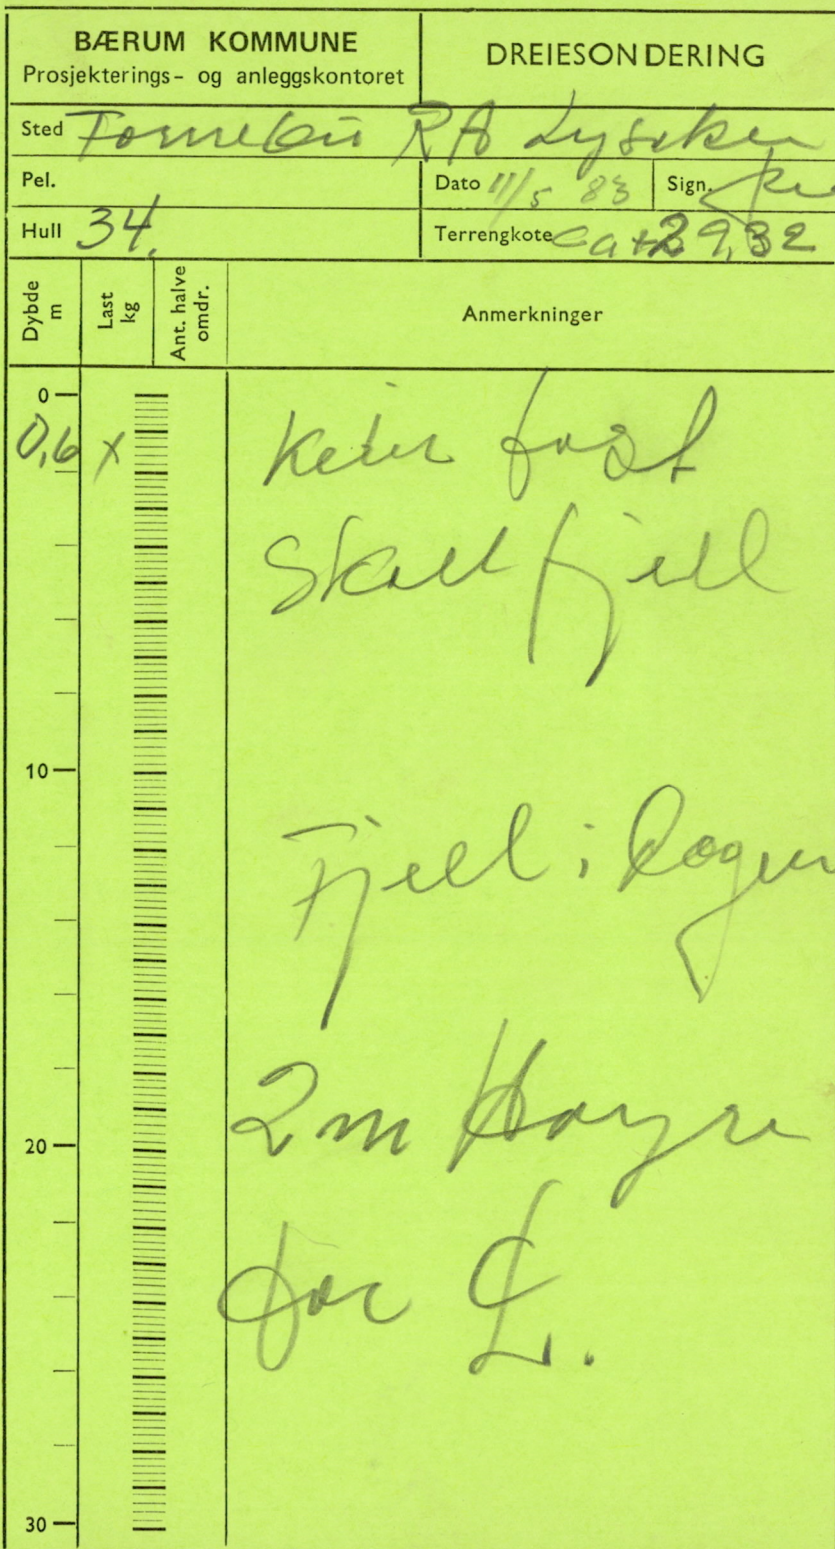 BÆRUM KOMMUNE
Prosjekterings- og anleggskontoret
DREIESONDERING
Sted Fornebu RA Lysaker
Pel.
Dato 11/5 83
Sign.
Hull 34.
Terrengkote ca +29,32
Dybde m
Last kg
Ant. halve omdr.
Anmerkninger
0
0,6 x
fast
Skall fjell
10
Fjell i dagen
2m Høyre
20
for ℄.
30